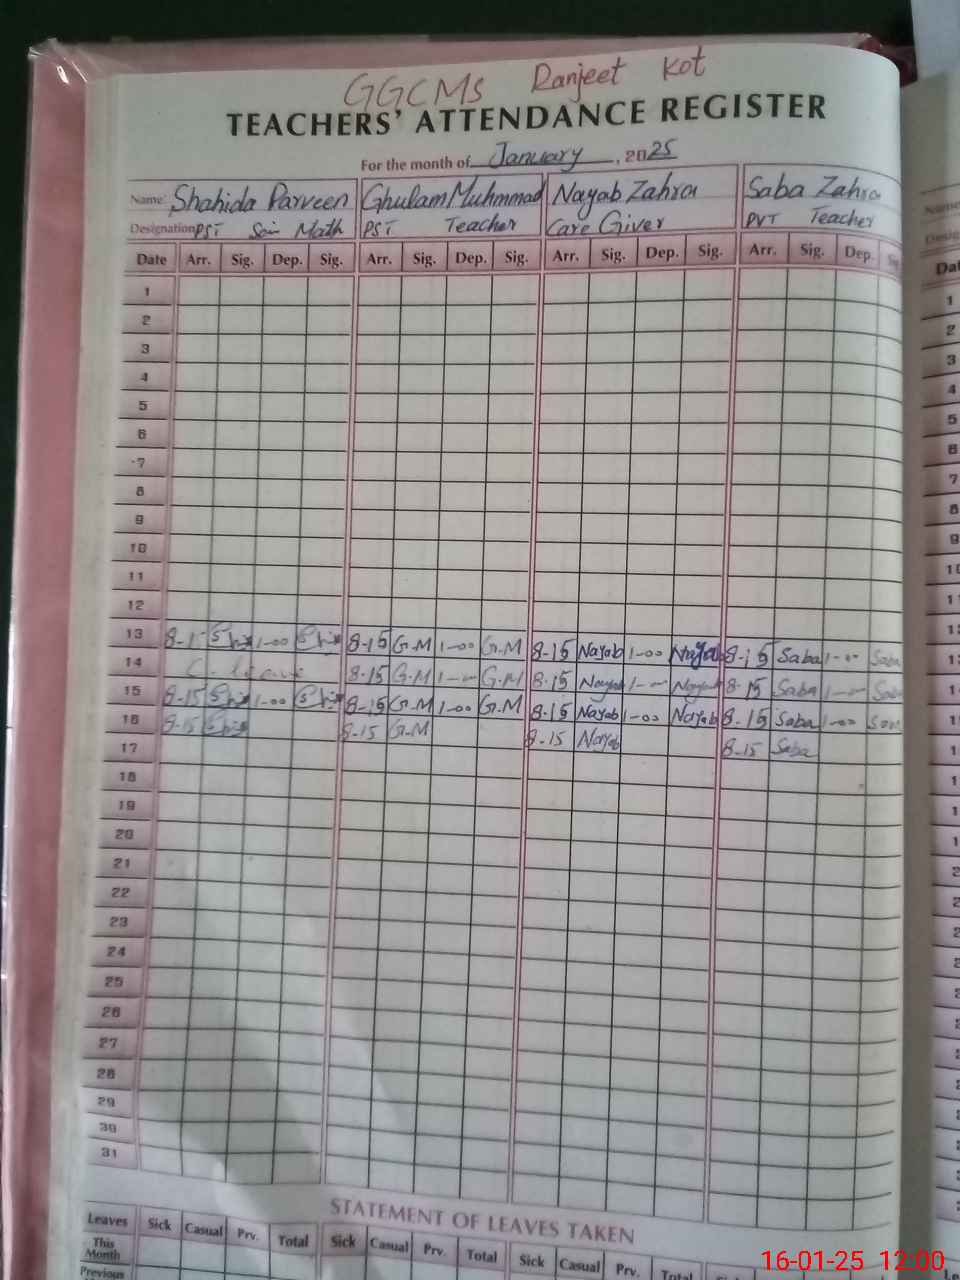 GGCMS Ranjeet Kot
TEACHERS' ATTENDANCE REGISTER
For the month of January, 2025
Name: Shahida Parveen Ghulam Muhmmad Nayab Zahra Saba Zahra
Designation PST Math PST Teacher Care Giver PVT Teacher
Date Arr. Sig. Dep. Sig. Arr. Sig. Dep. Sig. Arr. Sig. Dep. Sig. Arr. Sig. Dep.
1
2
3
4
5
6
7
8
9
10
11
12
13 8-15 1-00 8-15 G.M 1-00 G.M 8-15 Nayab 1-00 Nayab 8-15 Saba 1-00 Saba
14 C. leave 8-15 G.M 1-00 G.M 8-15 Nayab 1-00 Nayab 8-15 Saba 1-00 Saba
15 8-15 1-00 8-15 G.M 1-00 G.M 8-15 Nayab 1-00 Nayab 8-15 Saba 1-00
16 8-15 8-15 G.M 8-15 Nayab 8-15 Saba
17
18
19
20
21
22
23
24
25
26
27
28
29
30
31
STATEMENT OF LEAVES TAKEN
Leaves Sick Casual Prv. Total Sick Casual Prv. Total Sick Casual Prv. Total
This Month
Previous
16-01-25 12:00